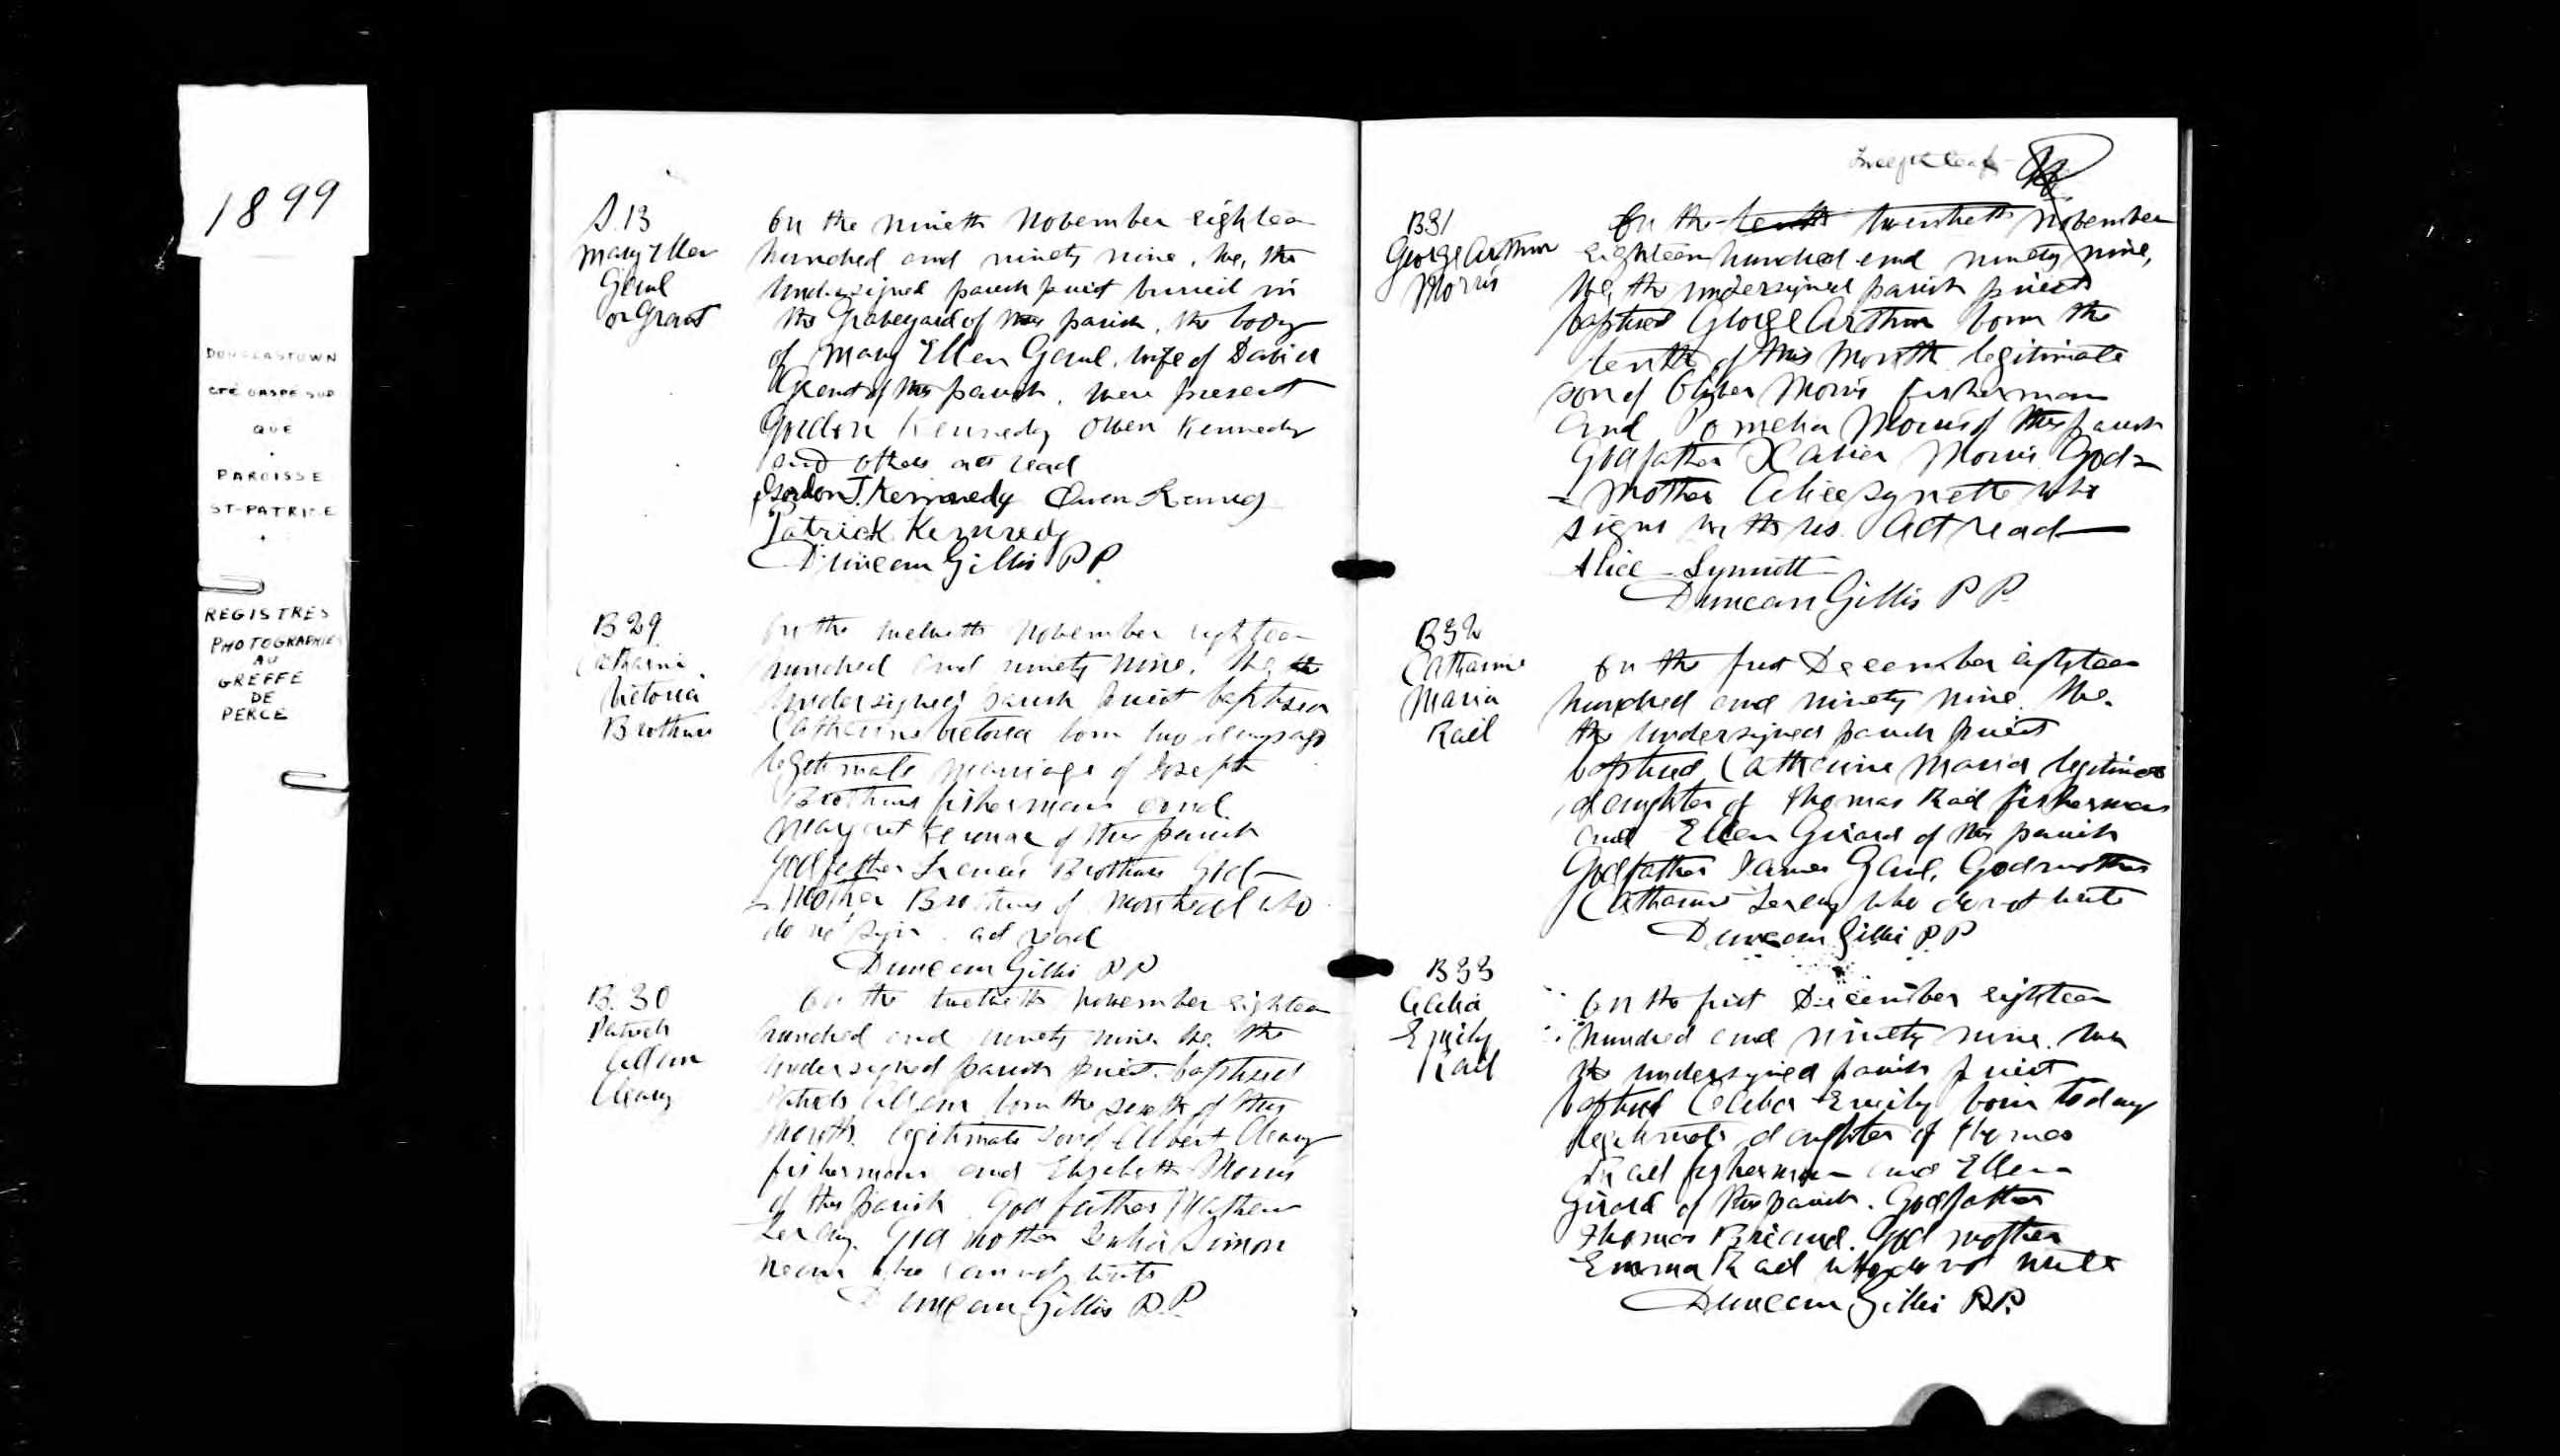 1899
DOUGLASTOWN
CTÉ GASPÉ SUD
QUE
PAROISSE
ST-PATRICE
REGISTRES
PHOTOGRAPHIÉS
AU
GREFFE
DE
PERCÉ
S.13
Mary Ellen
Gaul
or Grant
On the nineth November eighteen
hundred and ninety nine, We, the
undersigned parish priest buried in
the Graveyard of this parish, the body
of Mary Ellen Gaul, wife of David
Grant of this parish, were present
Gordon Kennedy Owen Kennedy
and others act read
Gordon J. Kennedy Owen Kennedy
Patrick Kennedy
Duncan Gillis PP
B 29
Catharine
Victoria
Brothers
On the twelveth November eighteen
hundred and ninety nine, We, the
undersigned parish priest baptised
Catherine Victoria born two days ago
legitimate marriage of Joseph
Brothers fisherman and
Margaret of this parish
Godfather Francis Brothers God-
- Mother Brothers of Montreal who
do not sign. act read
Duncan Gillis PP
B. 30
Patrick
Cleary
On the twelveth November eighteen
hundred and ninety nine We, the
undersigned parish priest baptised
Patrick born the sixth of this
Month legitimate son of Albert Cleary
fisherman and Elizabeth Morris
of this parish. Godfather Mathew
God mother Simon
who cannot write
Duncan Gillis P.P.
leaf
B31
George Arthur
Morris
On the tenth twentieth November
eighteen hundred and ninety nine,
We, the undersigned parish priest
baptised George Arthur born the
tenth of this Month legitimate
son of Oliver Morris fisherman
and Pamelia Morris of this parish
Godfather Xavier Morris God-
- Mother Alice Synette who
signs with us. Act read
Alice Synnott
Duncan Gillis P P.
B32
Catharine
Maria
Rail
On the first December eighteen
hundred and ninety nine. We,
the undersigned parish priest
baptised Catherine Maria legitimate
daughter of Thomas Rail fisherman
and Ellen Girard of this parish
Godfather James Gaul, Godmother
Catharine who do not write
Duncan Gillis P.P
B33
Celia
Emily
Rail
On the first December eighteen
hundred and ninety nine. We
the undersigned parish priest
baptised Celia Emily born today
legitimate daughter of Thomas
Rail fisherman and Ellen
Girard of this parish. Godfather
Thomas Briand. God mother
Emma Rail who do not write
Duncan Gillis P.P.